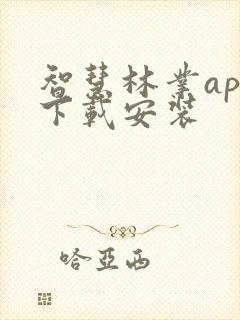 智慧林业ap
下载安装
哈亚西